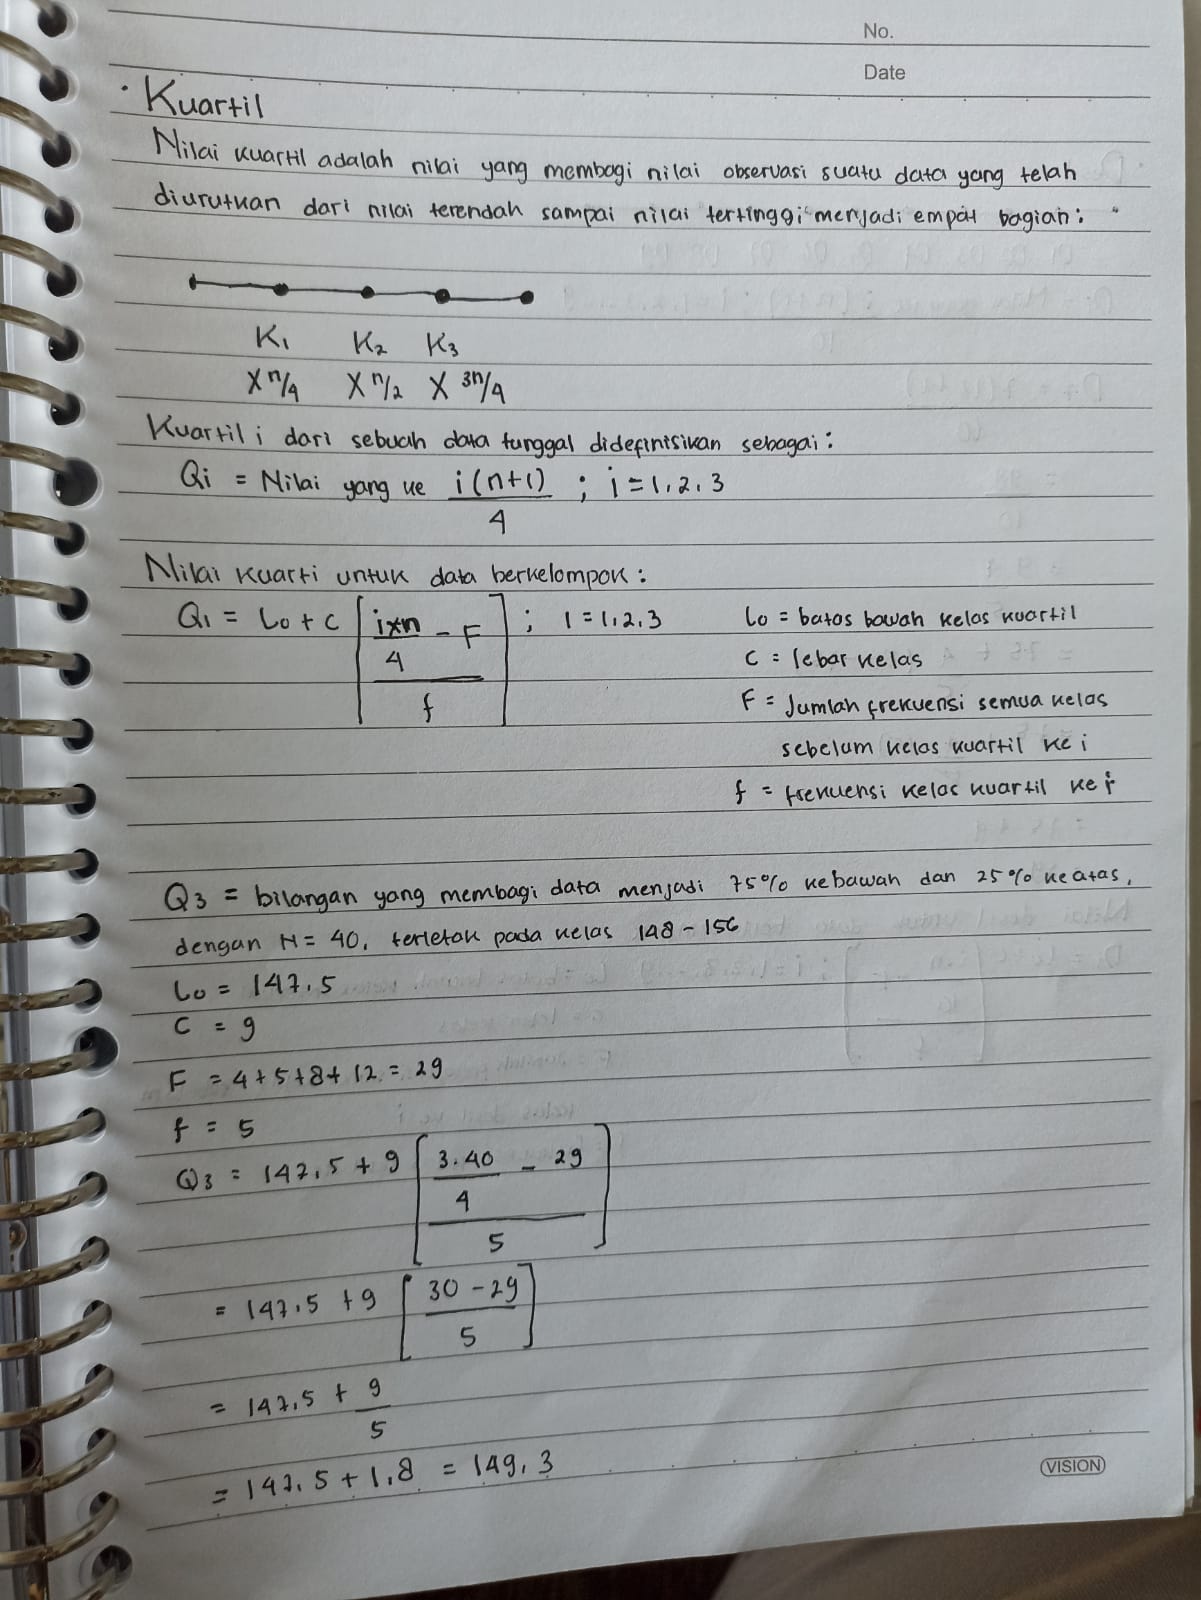 No.
Date
· Kuartil
Nilai kuartil adalah nilai yang membagi nilai observasi suatu data yang telah
diurutkan dari nilai terendah sampai nilai tertinggi menjadi empat bagian:
K₁ K₂ K₃
X n/4 X n/2 X 3n/4
Kuartil i dari sebuah data tunggal didefinisikan sebagai:
Qi = Nilai yang ke i(n+1) ; i = 1, 2, 3
4
Nilai kuarti untuk data berkelompok:
Q₁ = Lo + C [ ixn - F ] ; 1 = 1, 2, 3 Lo = batas bawah kelas kuartil
4 C = lebar kelas
f F = Jumlah frekuensi semua kelas
sebelum kelas kuartil ke i
f = frekuensi kelas kuartil ke i
Q3 = bilangan yang membagi data menjadi 75% kebawah dan 25% keatas,
dengan N = 40, terletak pada kelas 148 - 156
Lo = 147,5
C = 9
F = 4 + 5 + 8 + 12 = 29
f = 5
Q3 = 147,5 + 9 [ 3.40 - 29 ]
4
5
= 147,5 + 9 [ 30 - 29 ]
5
= 147,5 + 9
5
= 147,5 + 1,8 = 149,3
VISION